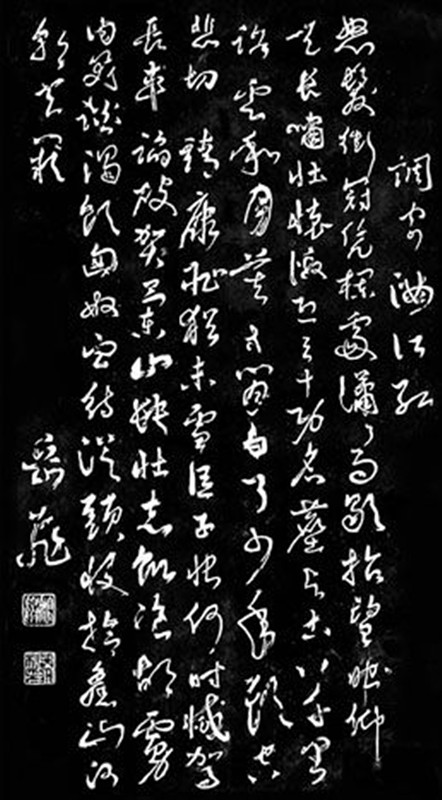 調寄滿江紅
怒髮衝冠憑欄處瀟瀟雨歇抬望眼仰
天長嘯壯懷激烈三十功名塵與土八千里
路雲和月莫等閒白了少年頭空
悲切靖康恥猶未雪臣子恨何時滅駕
長車踏破賀蘭山缺壯志飢飡胡虜
肉笑談渴飲匈奴血待從頭收拾舊山河
朝天闕
岳飛